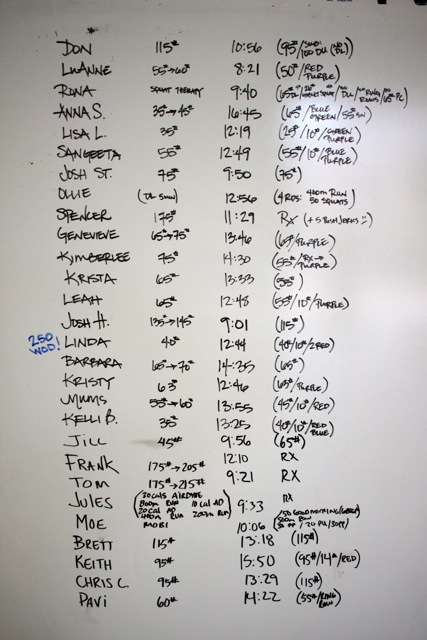 DON 115# 10:56 (95#/
LUANNE 55#→60# 8:21 (50#/RED PURPLE)
RONA SQUAT THERAPY 9:40
ANNA S. 35#→45# 16:45 (65#/BLUE GREEN/55#
LISA L. 35# 12:19 (25#/10#/GREEN PURPLE)
SANGEETA 55# 12:49 (55#/10#/BLUE PURPLE)
JOSH ST. 75# 9:50 (75#)
OLLIE 12:56 (4 RDS: 400M RUN 50 SQUATS)
SPENCER 175# 11:29 RX (+ 5 PUSH JERKS :)
GENEVIEVE 65#→75# 13:46 (65#/PURPLE)
KYMBERLEE 75# 14:30 (55#/RX→ PURPLE)
KRISTA 65# 13:33 (55#)
LEAH 65# 12:48 (55#/10#/PURPLE)
JOSH H. 135#→145# 9:01 (115#)
250 WOD! LINDA 40# 12:44 (40#/10#/2RED)
BARBARA 65#→70# 14:35 (65#)
KRISTY 63# 12:46 (65#/PURPLE)
MUMS 55#→60# 13:55 (45#/10#/RED)
KELLI B. 35# 13:25 (40#/10#/RED BLUE)
JILL 45# 9:56 (65#)
FRANK 175#→205# 12:10 RX
TOM 175#→215# 9:21 RX
JULES (30 CALS AIRDYNE 800M RUN 10 CAL AD 20 CAL AD 400M RUN 200M RUN) 9:33 RX
MOE MOBI 10:06
BRETT 115# 13:18 (115#)
KEITH 95# 15:50 (95#/14#/RED)
CHRIS C. 95# 13:29 (115#)
PAVI 60# 14:22 (55#/RING ROW)